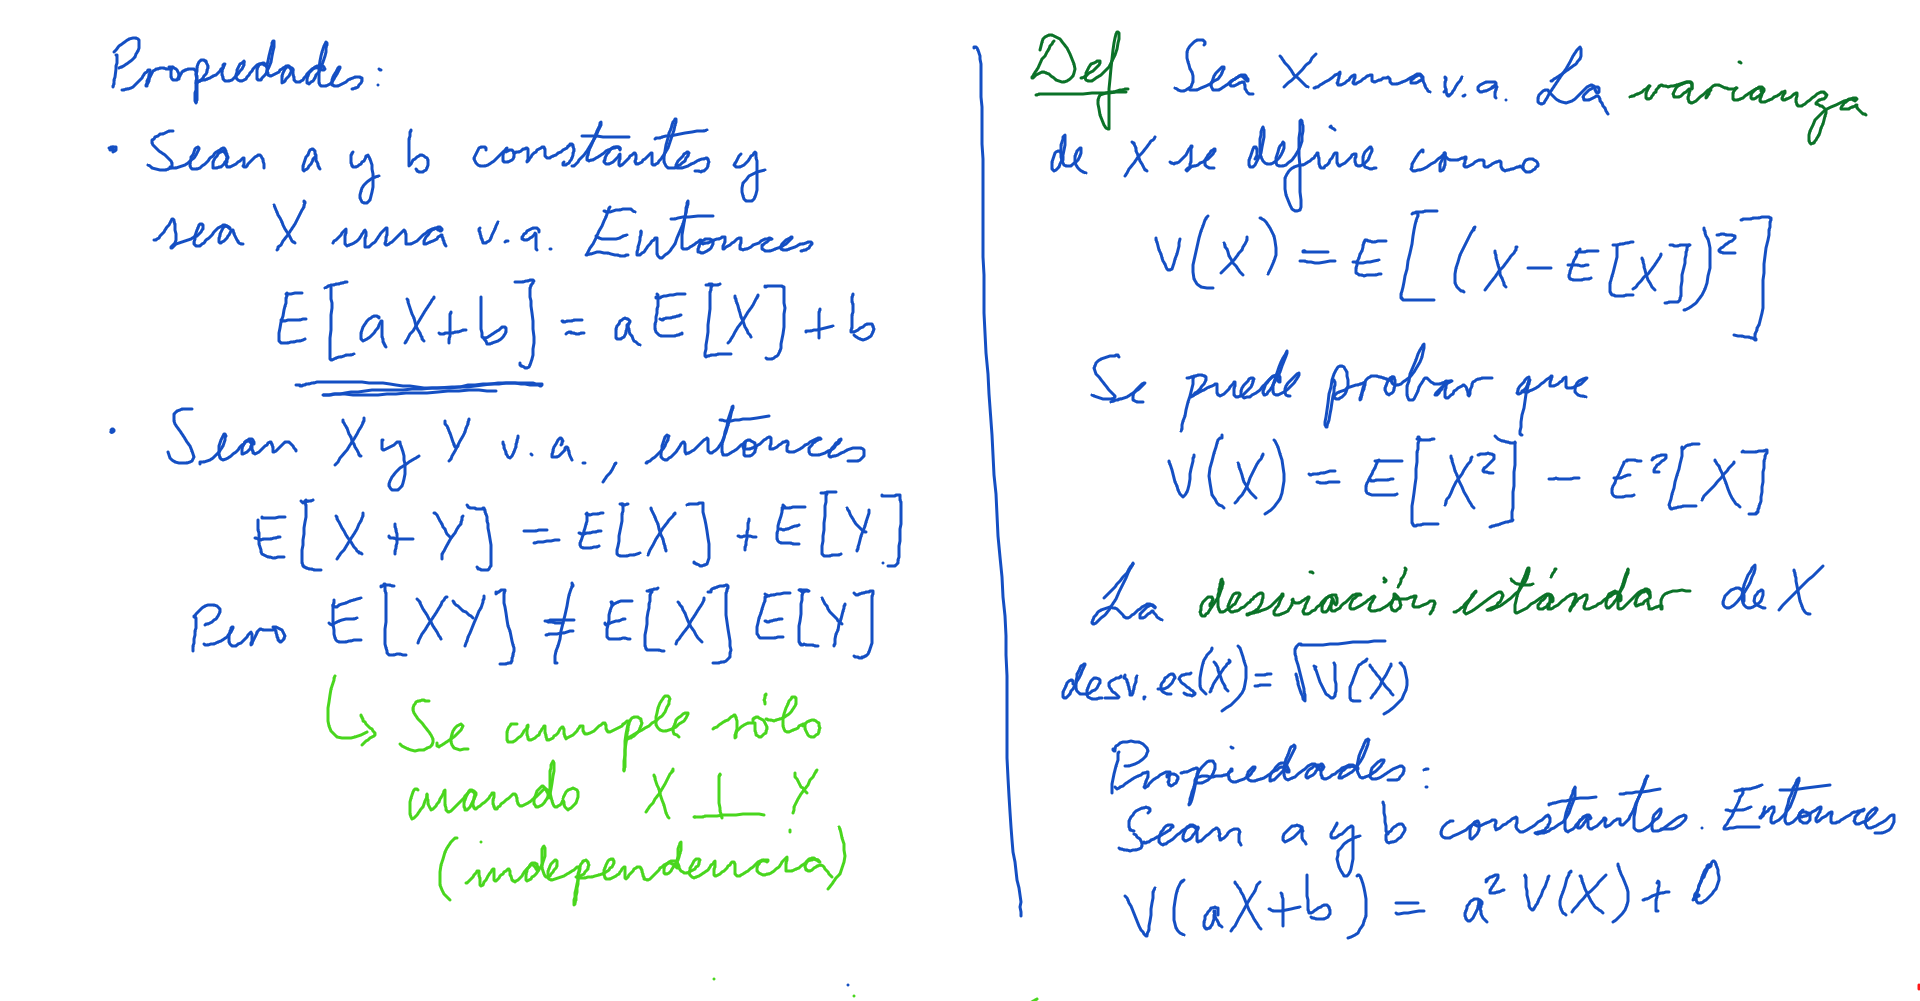 Propiedades:
· Sean a y b constantes y
sea X una v.a. Entonces
E[aX+b] = aE[X]+b
· Sean X y Y v.a., entonces
E[X+Y] = E[X]+E[Y]
Pero E[XY] ≠ E[X]E[Y]
↳ Se cumple sólo
cuando X ⊥ Y
(independencia)
Def Sea X una v.a. La varianza
de X se define como
V(X) = E[(X-E[X])²]
Se puede probar que
V(X) = E[X²] - E²[X]
La desviación estándar de X
desv.es(X) = √V(X)
Propiedades:
Sean a y b constantes. Entonces
V(aX+b) = a²V(X)+0